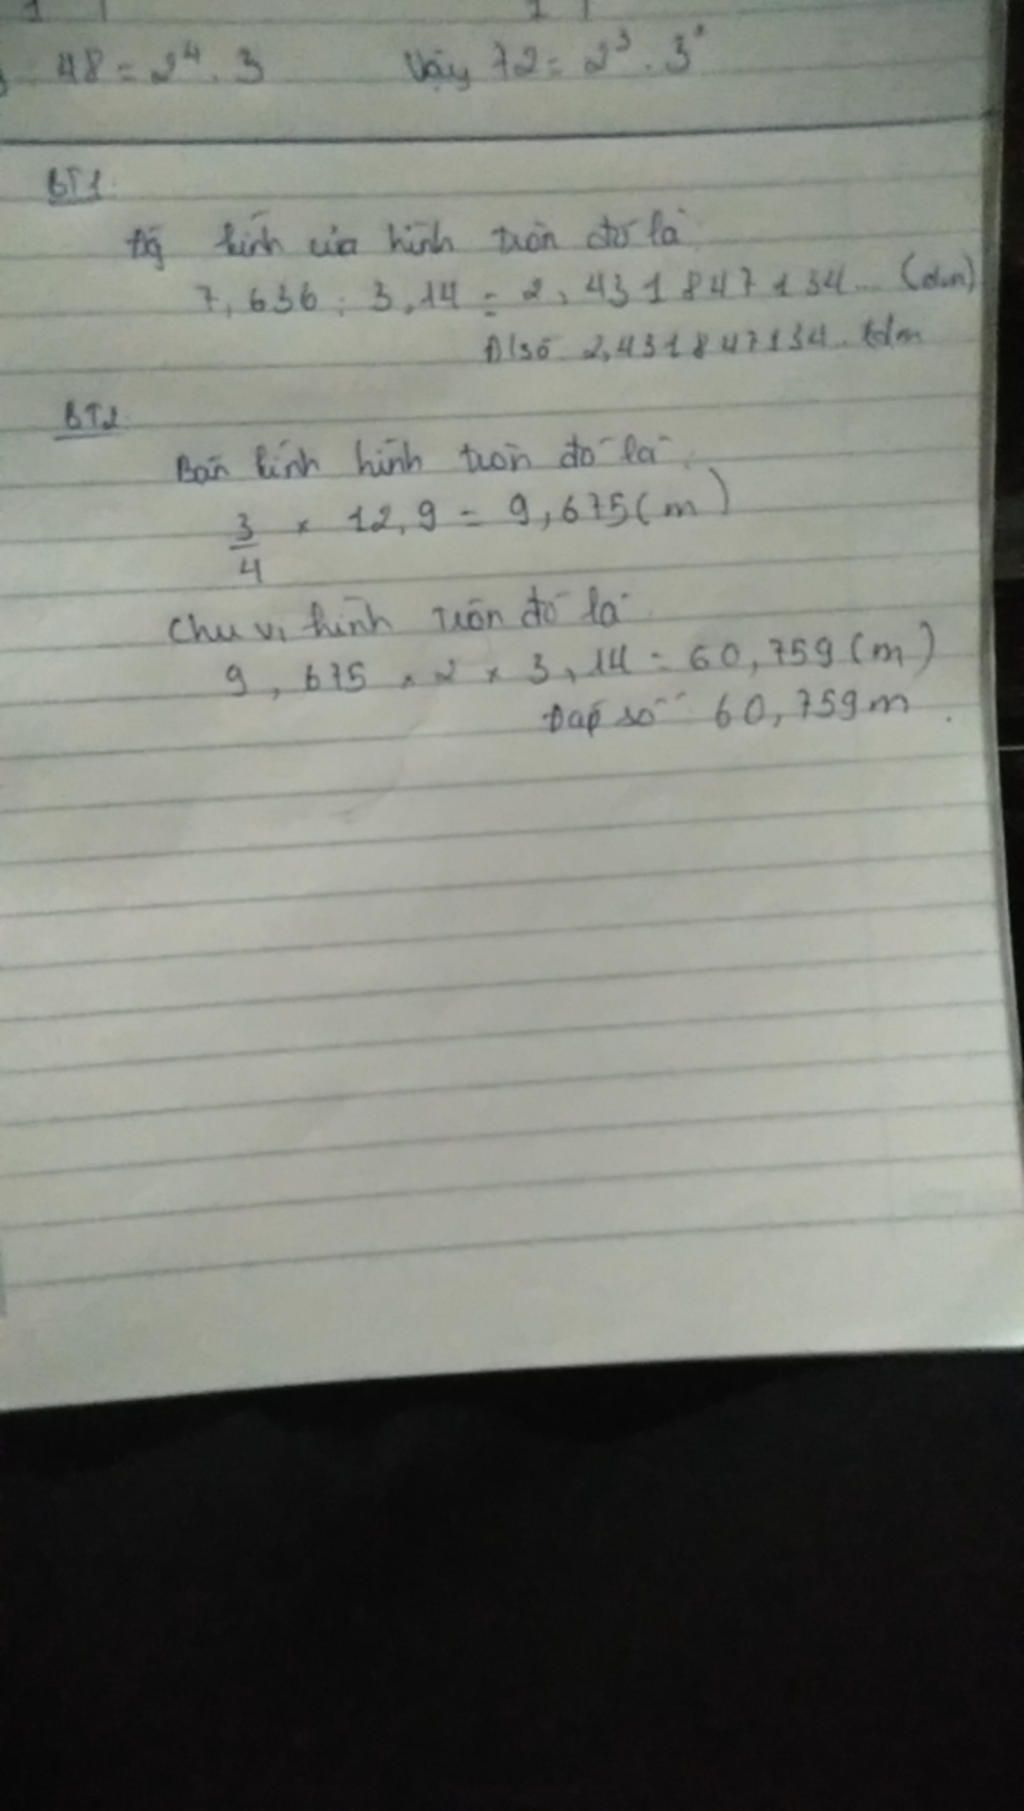 48 = 2⁴ . 3 Vậy 72 = 2³ . 3²
BT1
kính của hình tròn đó là
7,636 : 3,14 = 2,431847134... (dm)
Đ/số 2,431847134... dm
BT2
Bán kính hình tròn đó là
3/4 × 12,9 = 9,675 (m)
Chu vi hình tròn đó là
9,675 × 2 × 3,14 = 60,759 (m)
Đáp số 60,759 m